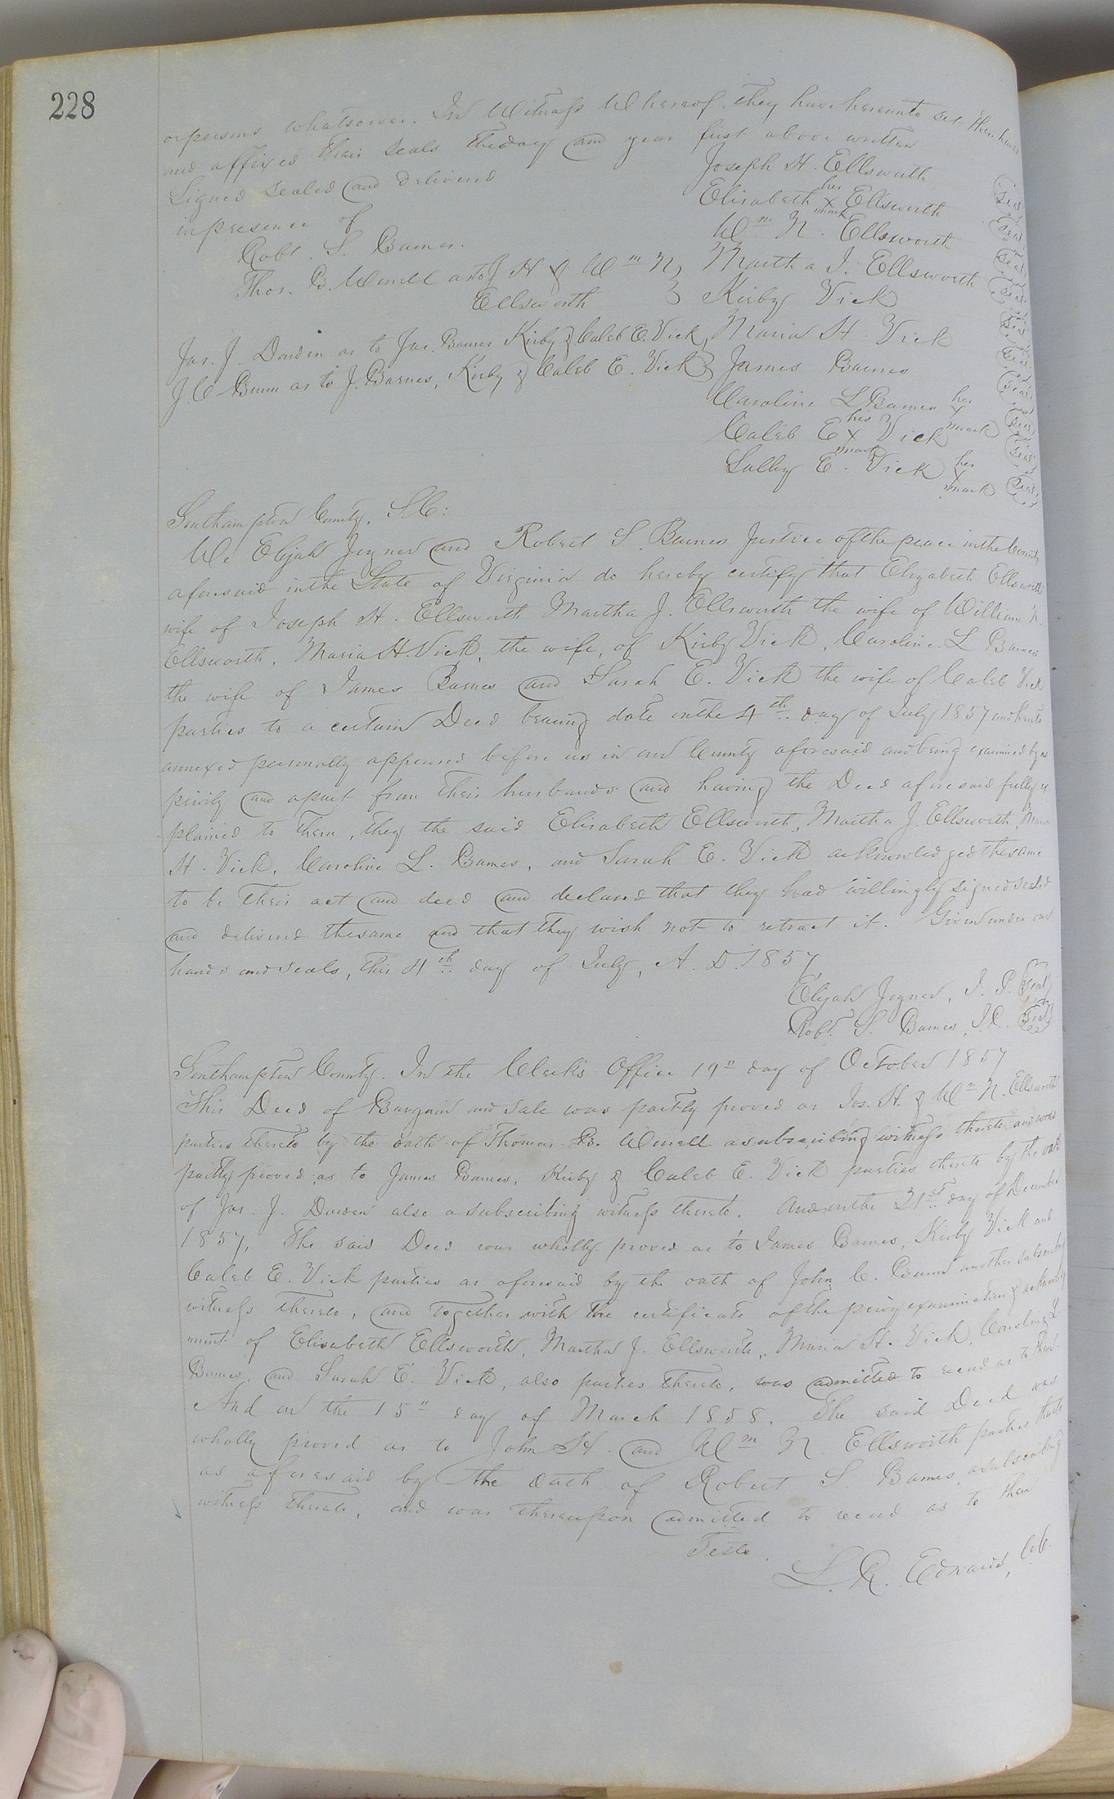 228
or persons whatsoever. In Witness Whereof they have hereunto set their hands
and affixed their seals the day and year first above written
Signed sealed and delivered
in presence of
Robt. S. Barnes.
Thos. B. Worrell as to J H & Wm N,
Ellsworth
Jas. J. Darden as to Jas. Barnes Kirby & Caleb E. Vick,
J. C. Bunn as to J. Barnes, Kirby & Caleb E. Vick
Joseph H. Ellsworth (Seal)
Elisabeth her x mark Ellsworth (Seal)
Wm N. Ellsworth (Seal)
Martha J. Ellsworth (Seal)
Kirby Vick (Seal)
Maria H. Vick (Seal)
James Barnes (Seal)
Caroline L Barnes her x mark (Seal)
Caleb E his x mark Vick (Seal)
Sally E. Vick her x mark (Seal)
Southampton County, S.C:
We Elijah Joyner and Robert S. Barnes Justice of the peace in the County
aforesaid in the State of Virginia do hereby certify that Elizabeth Ellsworth
wife of Joseph H. Ellsworth Martha J. Ellsworth the wife of William N.
Ellsworth, Maria H. Vick, the wife, of Kirby Vick, Caroline L Barnes
the wife of James Barnes and Sarah E. Vick the wife of Caleb Vick
parties to a certain Deed bearing date on the 4th day of July 1857 and hereto
annexed personally appeared before us in our County aforesaid and being examined by us
privily and apart from their husbands and having the Deed aforesaid fully ex
plained to them, they the said Elisabeth Ellsworth, Martha J. Ellsworth, Maria
H. Vick, Caroline L. Barnes, and Sarah E. Vick acknowledged the same
to be their act and deed and declared that they had willingly signed sealed
and delivered the same and that they wish not to retract it. Given under our
hands and seals, this 4th day of July, A. D. 1857
Elijah Joyner, J. P. (Seal)
Robt. S. Barnes, J.P. (Seal)
Southampton County. In the Clerks Office 19" day of October 1857
This Deed of Bargain and sale was partly proved as Jos. H. & Wm N. Ellsworth
parties thereto by the oath of Thomas B. Worrell a subscribing witness thereto and was
partly proved as to James Barnes, Kirby & Caleb E. Vick parties thereto by the oath
of Jas. J. Darden also a subscribing witness thereto. And on the 21st day of December
1857, The said Deed was wholly proved as to James Barnes, Kirby Vick and
Caleb E. Vick parties as aforesaid by the oath of John C. Bunn another subscribing
witness thereto, and together with the certificate of the privy examination & acknowledg
ment of Elisabeth Ellsworth, Martha J. Ellsworth, Maria H. Vick, Caroline L
Barnes, and Sarah E. Vick, also parties thereto, was admitted to record as to them.
And on the 15" day of March 1858. The said Deed was
wholly proved as to John H. and Wm N. Ellsworth parties thereto
as aforesaid by the oath of Robert S. Barnes, a subscribing
witness thereto, and was thereupon admitted to record as to them
Teste.
L. R. Edwards, Ck.